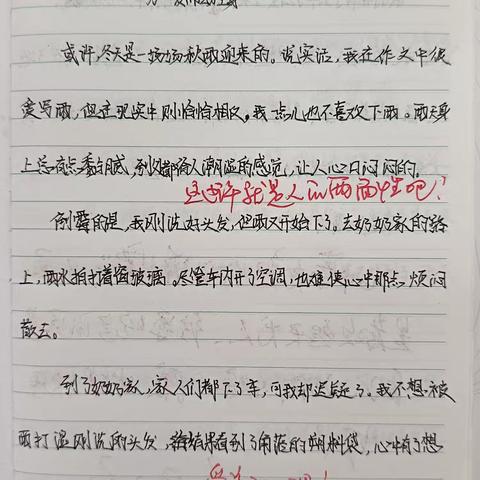 或许,冬天是一场场秋雨迎来的。说实话,我在作文中很
爱写雨,但在现实中则恰恰相反。我一点儿也不喜欢下雨。雨天身
上总有点黏腻感,到处都给人潮湿的感觉,让人心口闷闷的。
这也许就是人的两面性吧!
倒霉的是,我刚洗好头发,但雨又开始下了。去奶奶家的路
上,雨水拍打着窗玻璃。尽管车内开了空调,也难使心中那点烦闷
散去。
到了奶奶家,家人们都下了车,可我却迟疑了。我不想被
雨打湿刚洗的头发,结果看到了角落的塑料袋,心中有了想